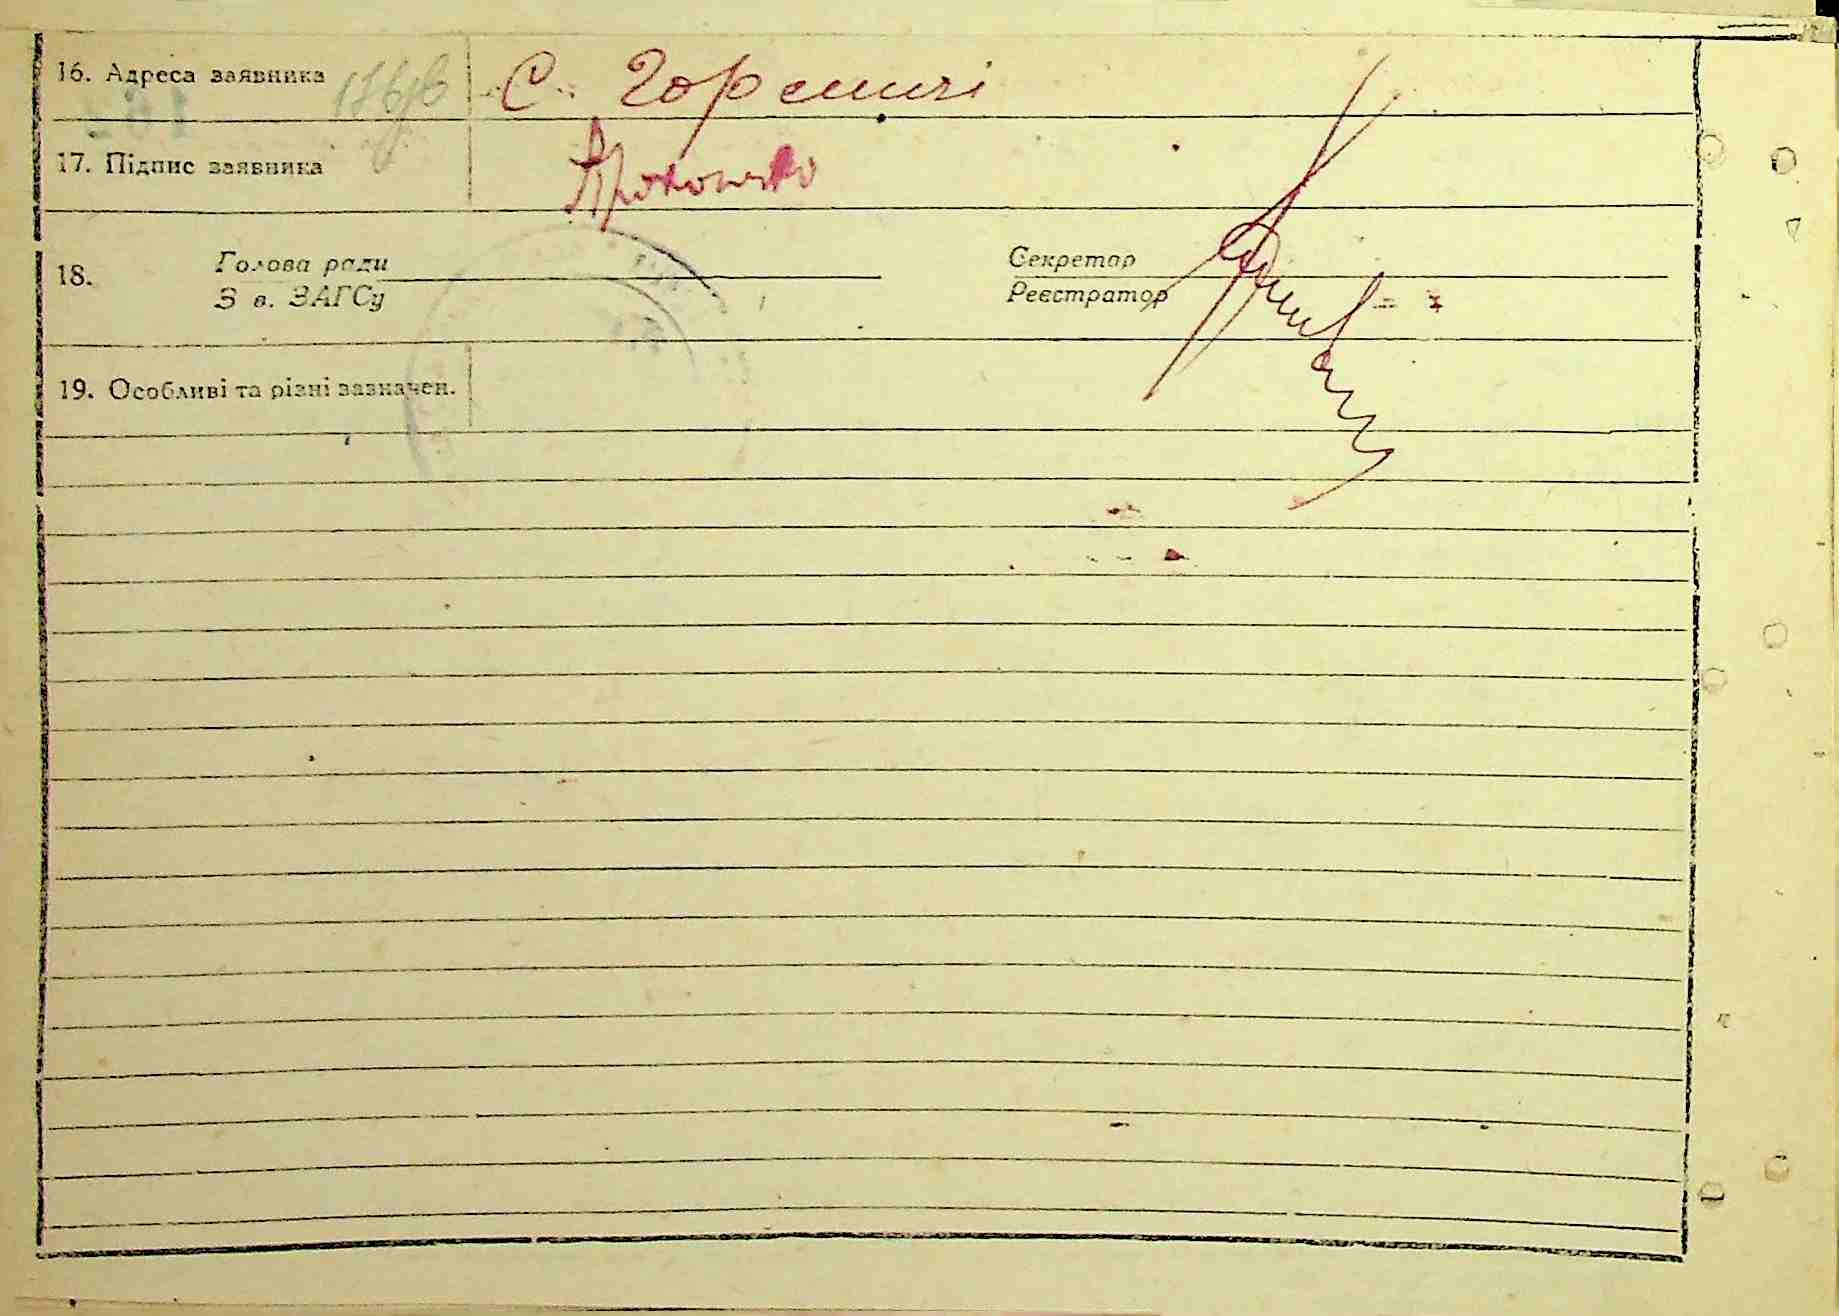 16. Адреса заявника 176зв С. Гореничі
17. Підпис заявника
18. Голова ради Секретар
З в. ЗАГСу Реєстратор
19. Особливі та різні зазначен.